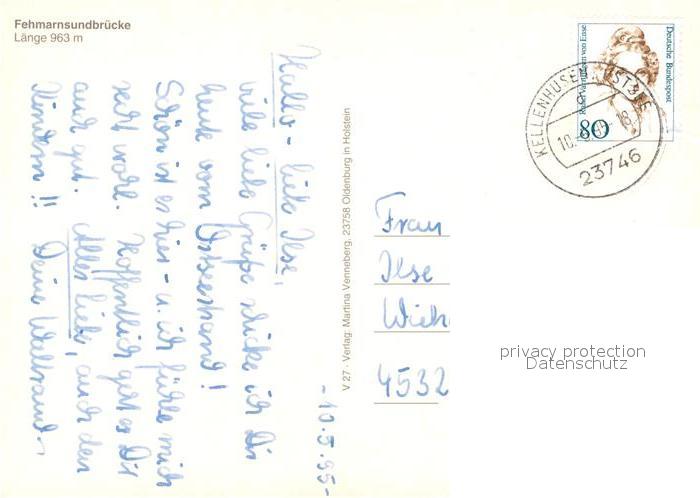 Fehmarnsundbrücke
Länge 963 m
Hallo - liebe Ilse,
viele liebe Grüße schicke ich Dir
heute vom Ostseestrand!
Schön ist es hier - u. ich fühle mich
sehr wohl. Hoffentlich geht es Dir
auch gut. Alles Liebe, auch den
Kindern!! Deine Waltraud -
- 10.5.95 -
V 27 · Verlag: Martina Venneberg, 23758 Oldenburg in Holstein
Deutsche Bundespost
Rahel Varnhagen von Ense
80
KELLENHUSEN, OSTSEE
10.
18
23746
Frau
Ilse
Wich
4532
privacy protection
Datenschutz